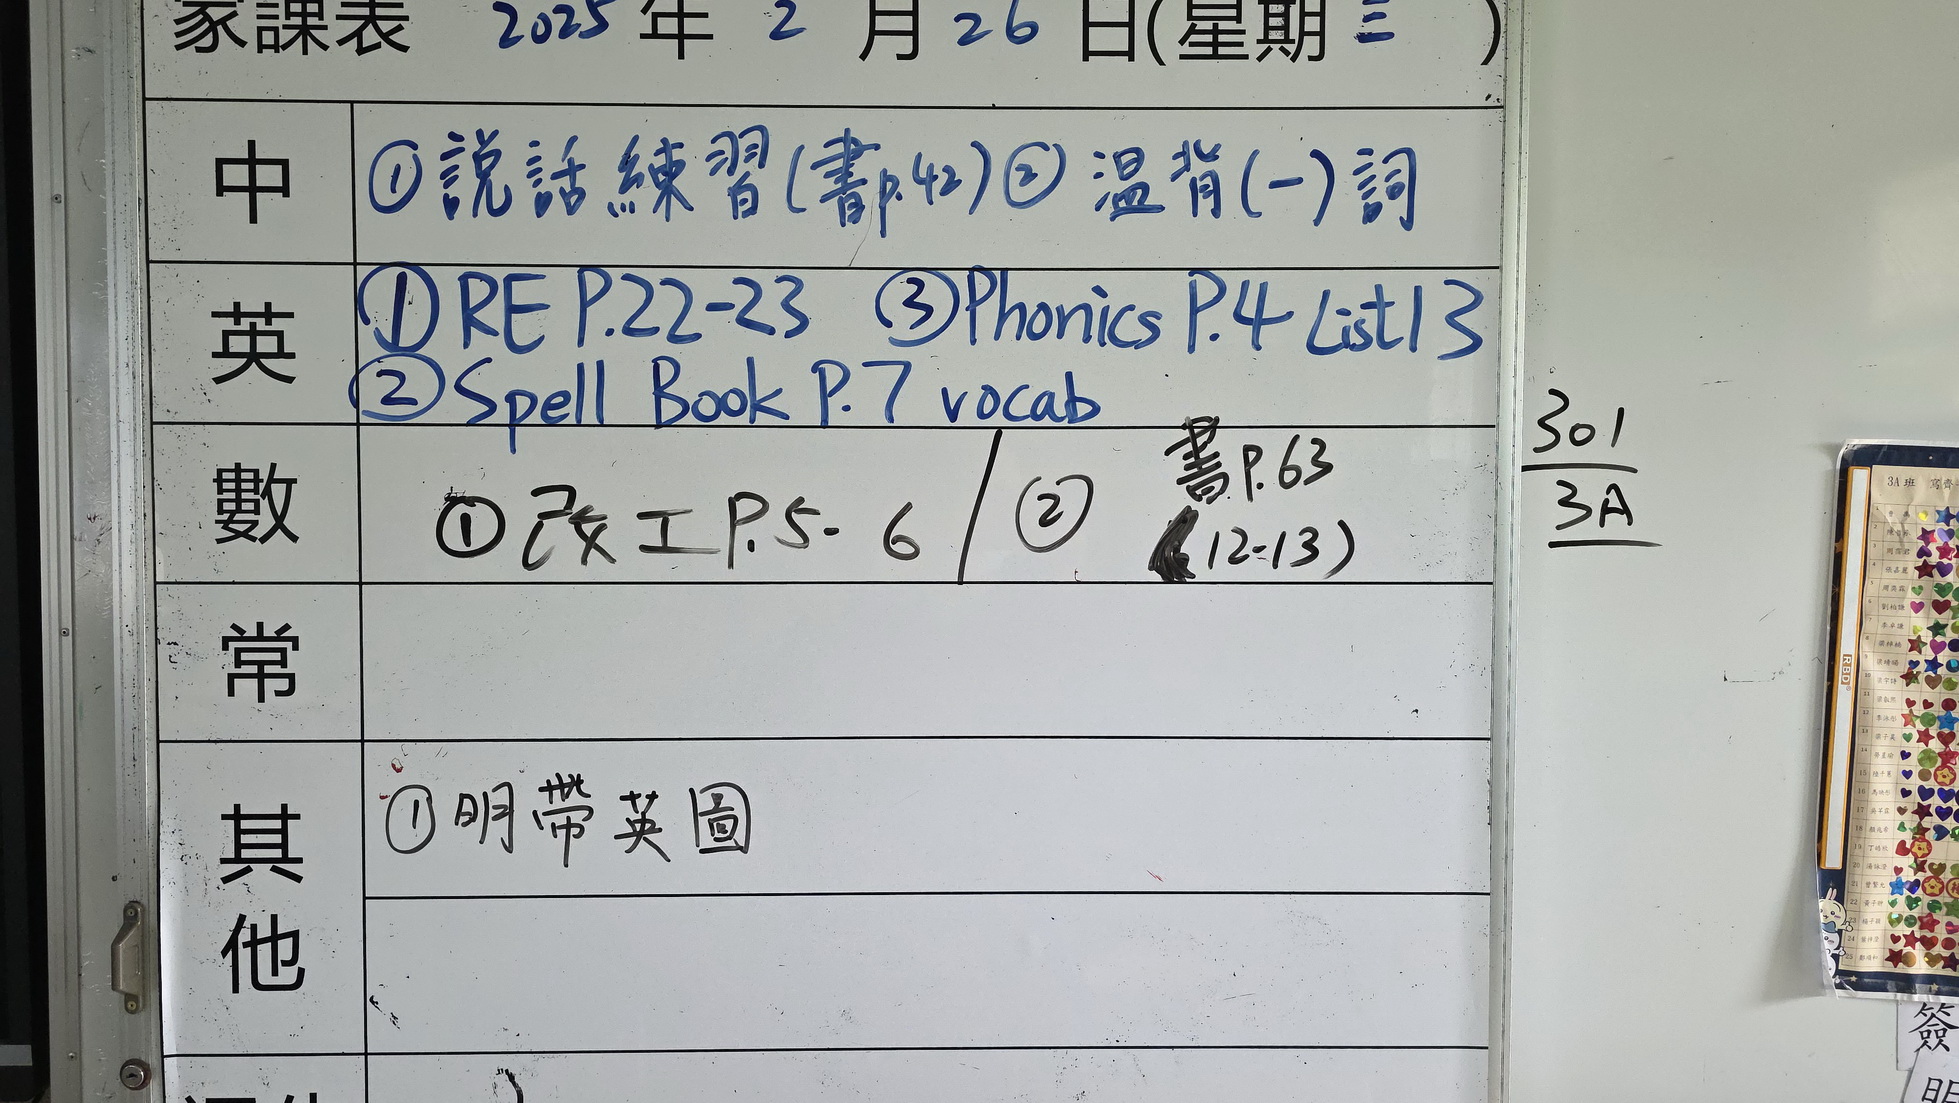 家課表 2025 年 2 月 26 日(星期 三 )
中 ①說話練習(書p.42)② 温背(一)詞
英 ①RE P.22-23 ③Phonics P.4 List13
②Spell Book P.7 vocab
數 ①改工P.5-6 / ② 書P.63
(12-13)
301
3A
常
其他 ①明帶英圖
3A 班
RBD
簽
明